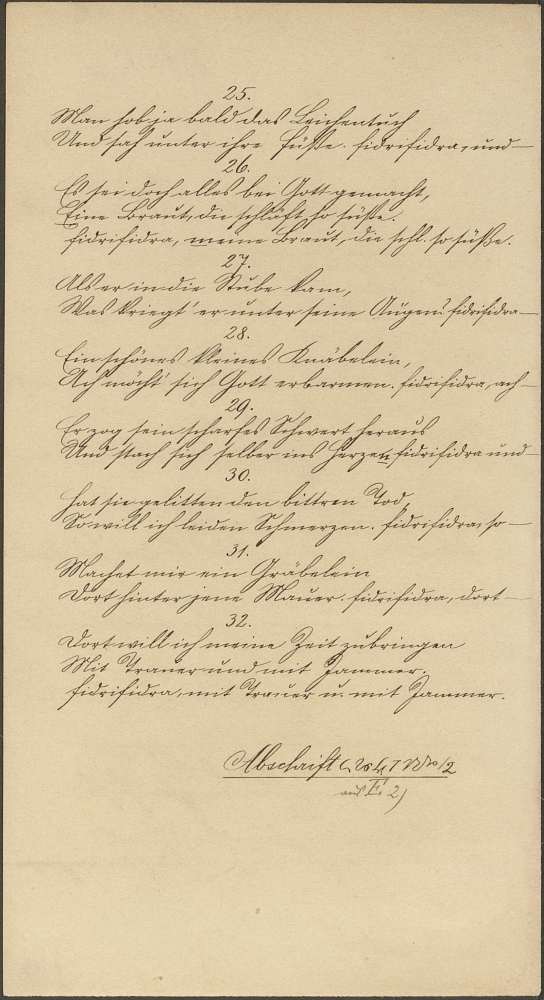 25.
Man hob ja bald das Leichentuch
Und sah unter ihre Füße. fidrifidra, und —
26.
Es sei doch alles bei Gott gemacht,
Eine Braut, die schläft so süße.
fidrifidra, meine Braut, die schl. so süße.
27.
Als er in die Stube kam,
Was kriegt' er unter seine Augen? fidrifidra —
28.
Ein schönes kleines Knäbelein,
Ach möcht' sich Gott erbarmen. fidrifidra, ach —
29.
Er zog sein scharfes Schwert heraus
Und stach sich selber ins Herzen fidrifidra und —
30.
Hat sie gelitten den bittren Tod,
So will ich leiden Schmerzen. fidrifidra, so —
31.
Machet mir ein Gräbelein
Dort hinter jene Mauer. fidrifidra, dort —
32.
Dort will ich meine Zeit zubringen
Mit Trauer und mit Jammer.
fidrifidra, mit Trauer u. mit Jammer.
Abschrift
aus E. 2)